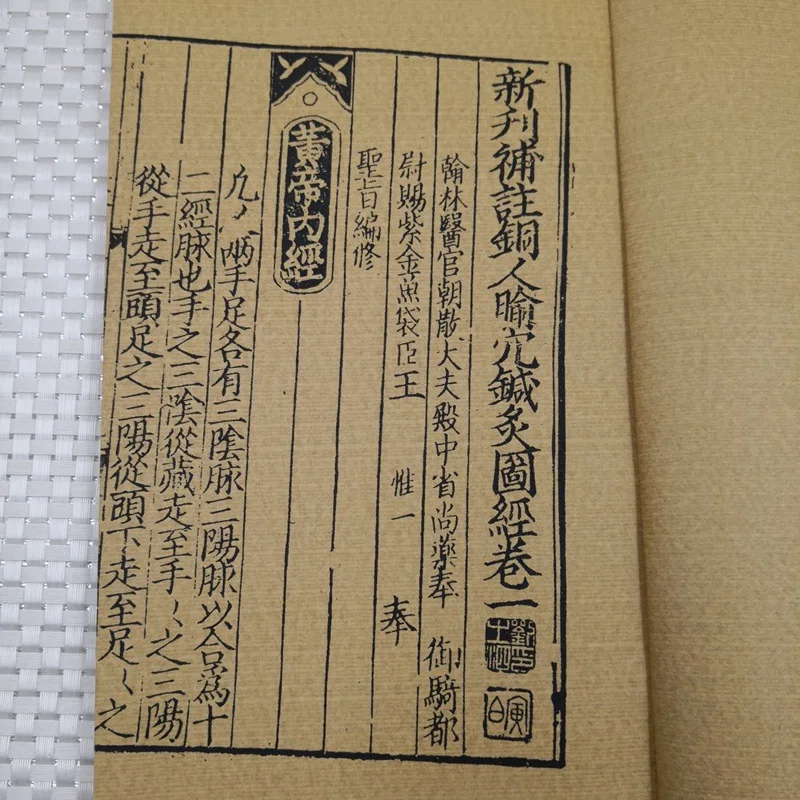 新刊補註銅人腧穴鍼灸圖經卷一
翰林醫官朝散大夫殿中省尚藥奉 御騎都
尉賜紫金魚袋臣王 惟一 奉
聖旨編修
黃帝內經
凡人兩手足各有三陰脉三陽脉以合爲十
二經脉也手之三陰從藏走至手手之三陽
從手走至頭足之三陽從頭下走至足足之